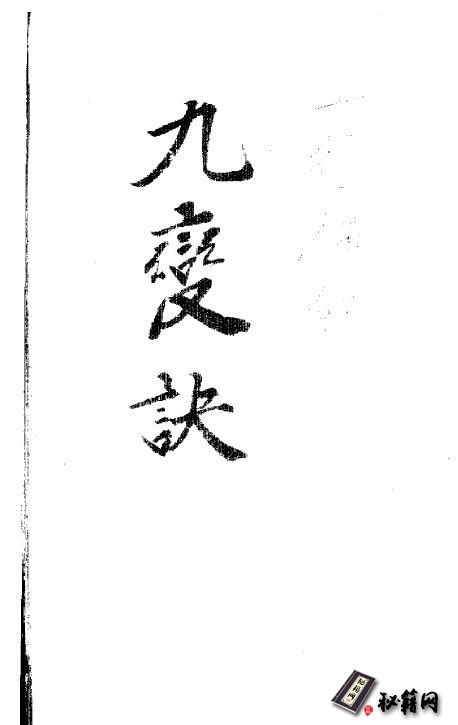 九變訣
秘籍网